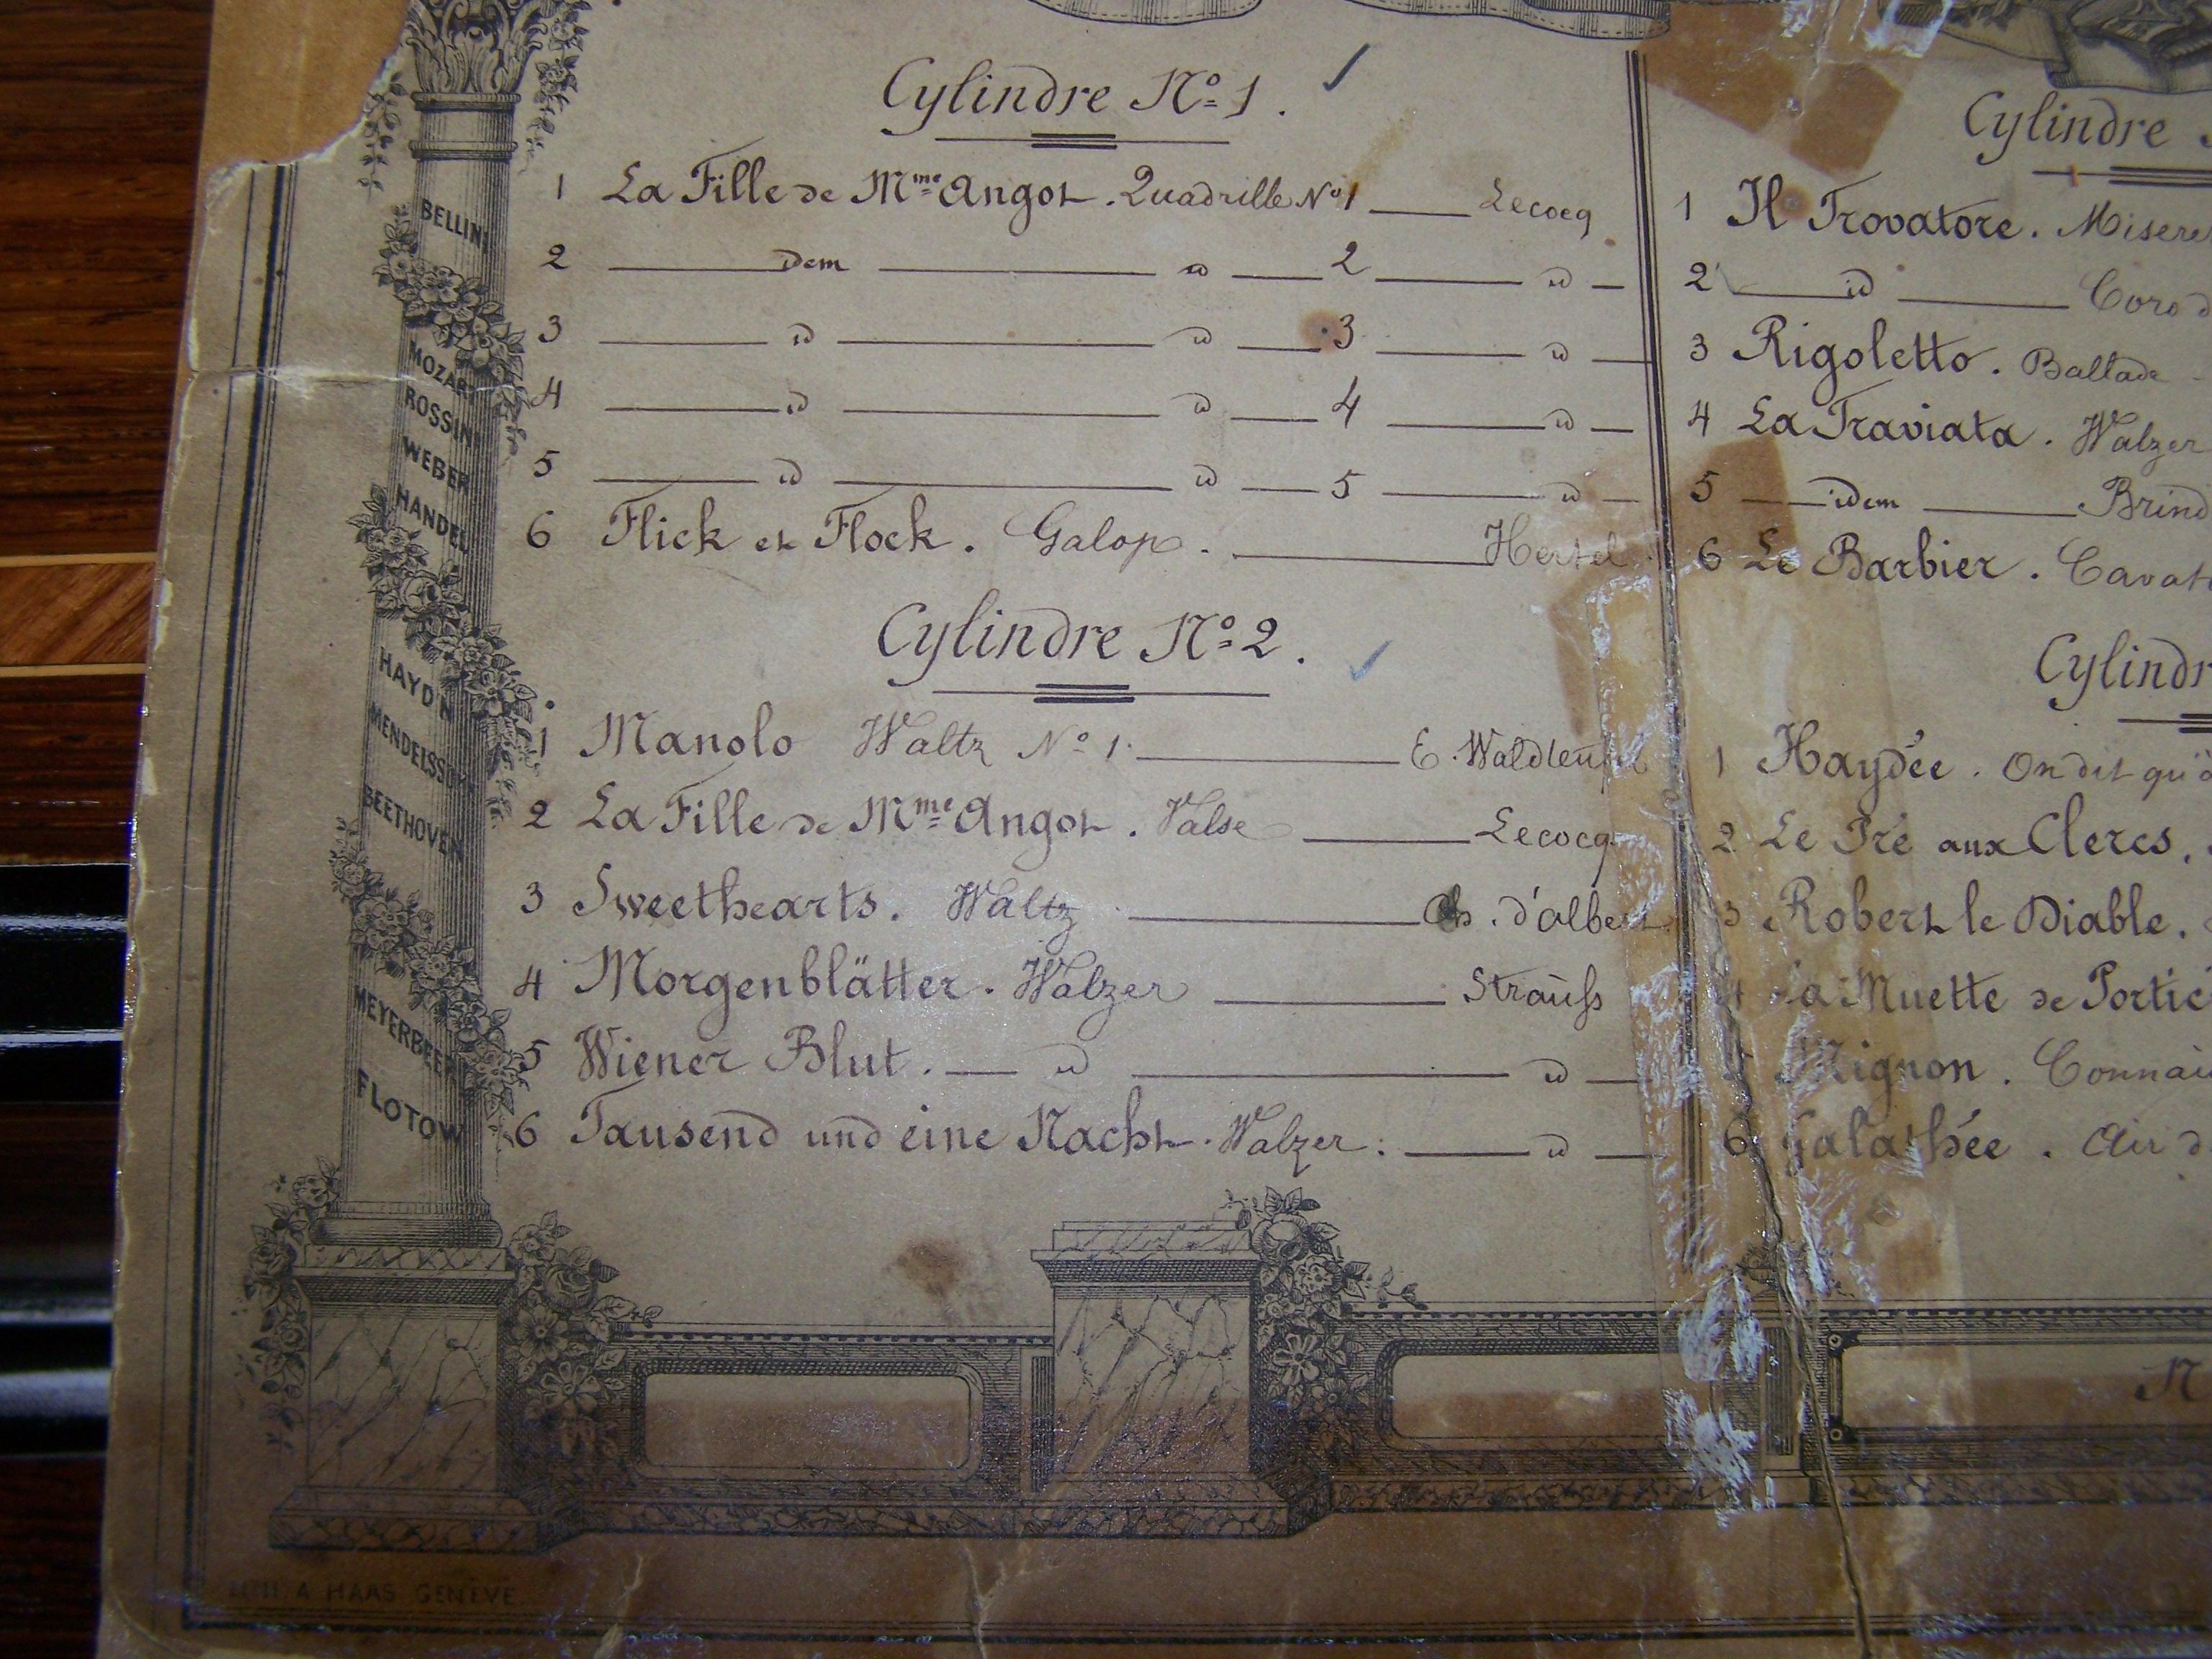 Cylindre Nº 1.
1 La Fille de Mme Angot. Quadrille Nº 1 Lecocq
2 idem id 2 id
3 id id 3 id
4 id id 4 id
5 id id 5 id
6 Flick et Flock. Galop. Hertel
Cylindre Nº 2.
1 Manolo Waltz Nº 1. E. Waldteufel
2 La Fille de Mme Angot. Valse Lecocq
3 Sweethearts. Waltz Ch. d'Albert
4 Morgenblätter. Walzer Strauſs
5 Wiener Blut. id id
6 Tausend und eine Nacht. Walzer. id
Cylindre
1 Il Trovatore. Misere
2 id Coro d
3 Rigoletto. Ballade
4 La Traviata. Walzer
5 idem Brind
6 Le Barbier. Cavat
Cylindr
1 Haydée. On dit qu'
2 Le Pré aux Clercs.
3 Robert le Diable.
4 La Muette de Portic
Mignon. Connai
6 Galathée. Air d
N
BELLINI
MOZART
ROSSINI
WEBER
HANDEL
HAYDN
MENDELSSO
BEETHOVEN
MEYERBEER
FLOTOW
LITH A HAAS GENÈVE